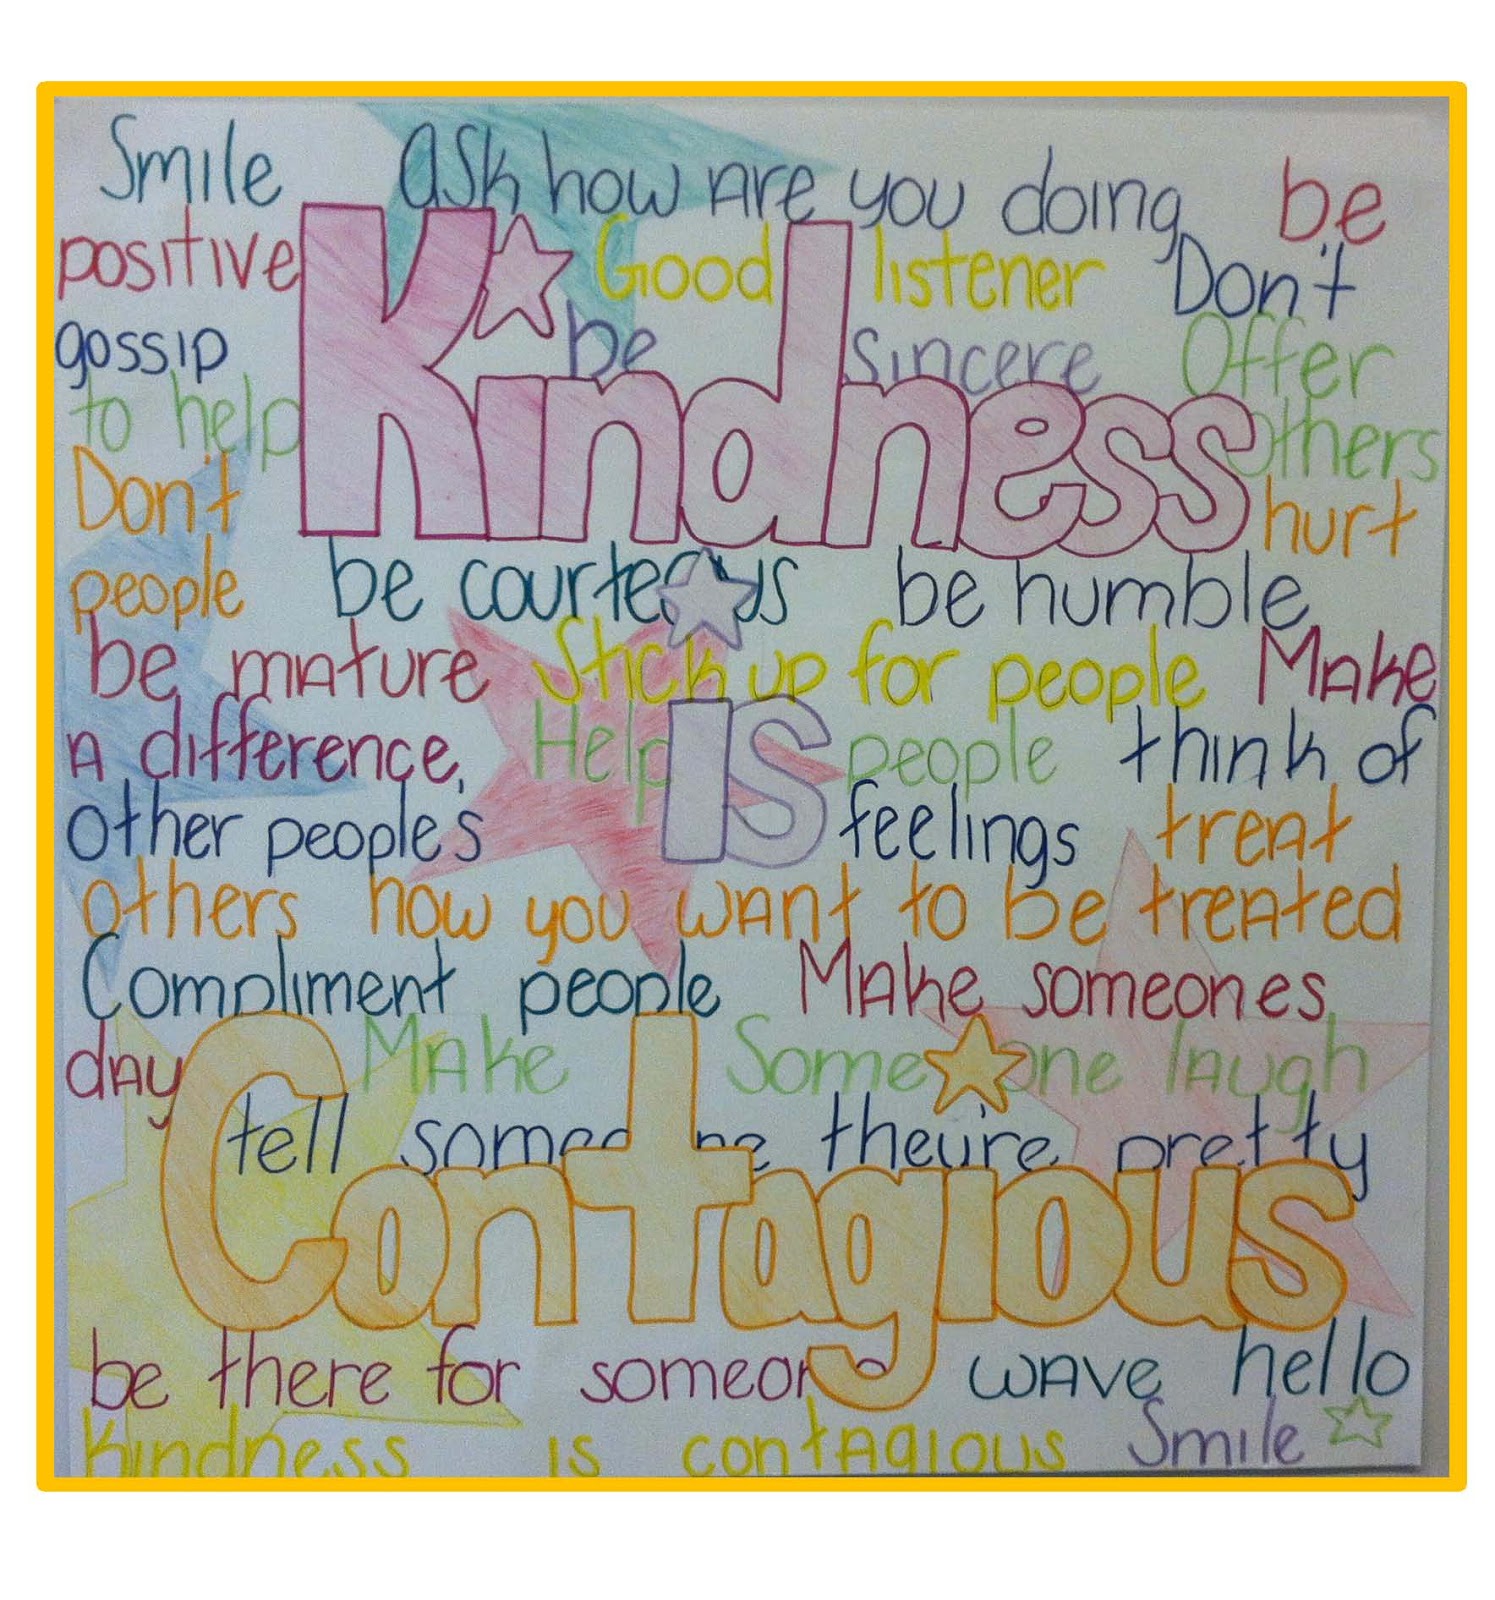 Smile ask how are you doing be
positive Good listener Don't
Kindness
gossip be sincere Offer
to help others
Don't hurt
people be courteous be humble
be mature Stick up for people Make
a difference, Help people think of
Is
other people's feelings treat
others how you want to be treated
Compliment people Make someones
day Make Someone laugh
tell someone they're pretty
Contagious
be there for someone wave hello
Kindness is contagious Smile